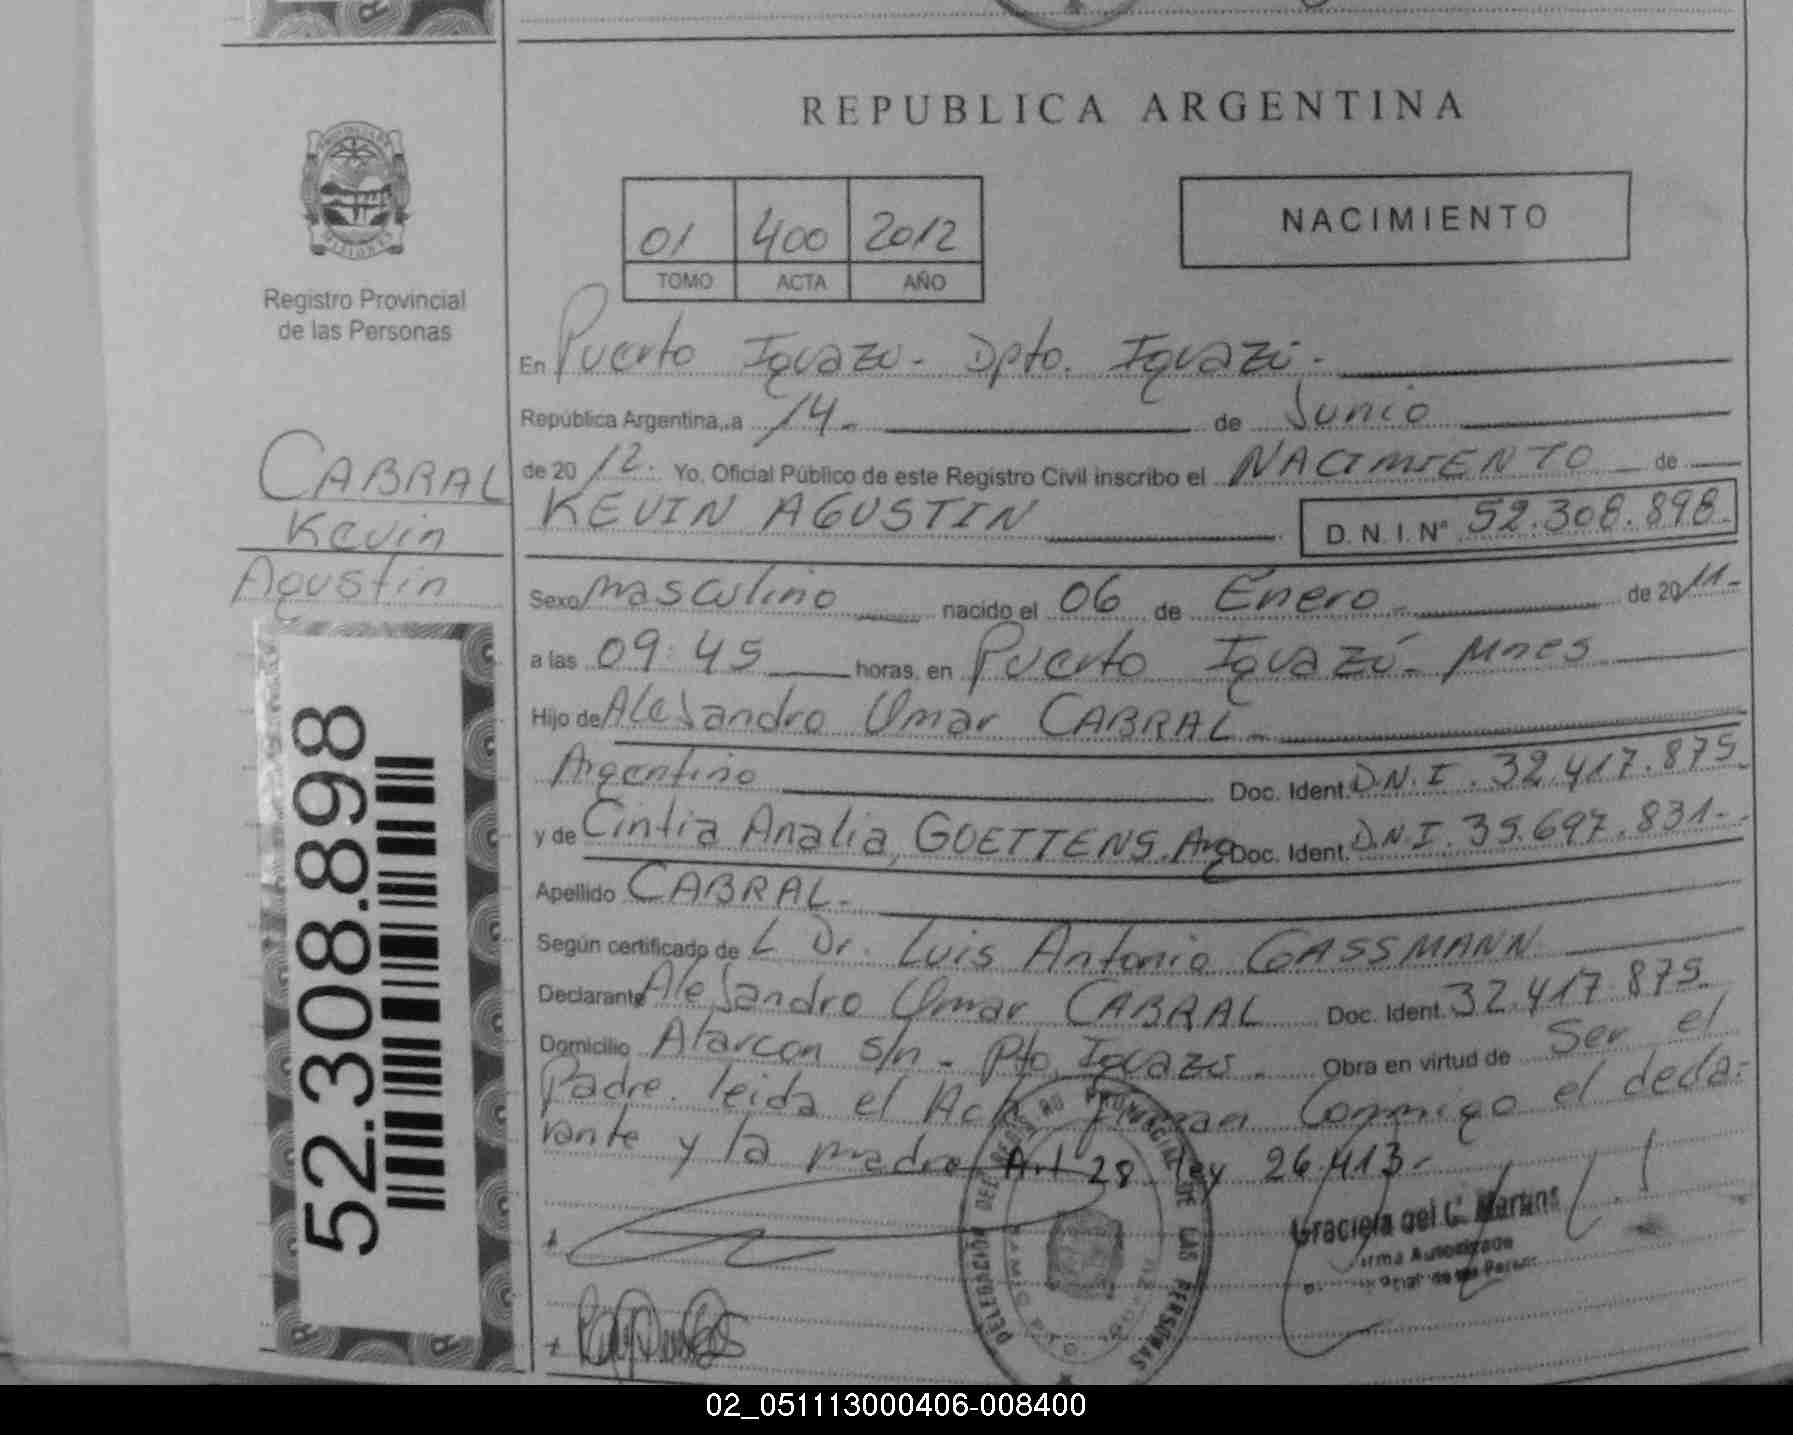 REPUBLICA ARGENTINA
NACIMIENTO
01 400 2012
TOMO ACTA AÑO
Registro Provincial
de las Personas
CABRAL
Kevin
Agustin
52.308.898
En Puerto Iguazu - Dpto. Iguazú -
República Argentina, a 14 - de Junio
de 20 12. Yo, Oficial Público de este Registro Civil inscribo el NACIMIENTO de
KEVIN AGUSTIN D. N. I. N° 52.308.898-
Sexo masculino nacido el 06 de Enero - de 20 11-
a las 09:45 horas, en Puerto Iguazú - Mnes
Hijo de Alejandro Omar CABRAL -
Argentino Doc. Ident. D.N.I. 32.417.875-
y de Cintia Analia, GOETTENS. Arg Doc. Ident. D.N.I. 35.697.831-
Apellido CABRAL-
Según certificado de L Dr. Luis Antonio GASSMANN
Declarante Alejandro Omar CABRAL Doc. Ident. 32.417.875-
Domicilio Alarcon s/n - Pto. Iguazú - Obra en virtud de Ser el
Padre. leida el Acta, Firman Conmigo el decla-
rante y la madre Art 28 ley 26.413-
DELEGACIÓN DEL REGISTRO PROVINCIAL DE LAS PERSONAS
Graciela del C. Martins
Firma Autorizada
02_051113000406-008400